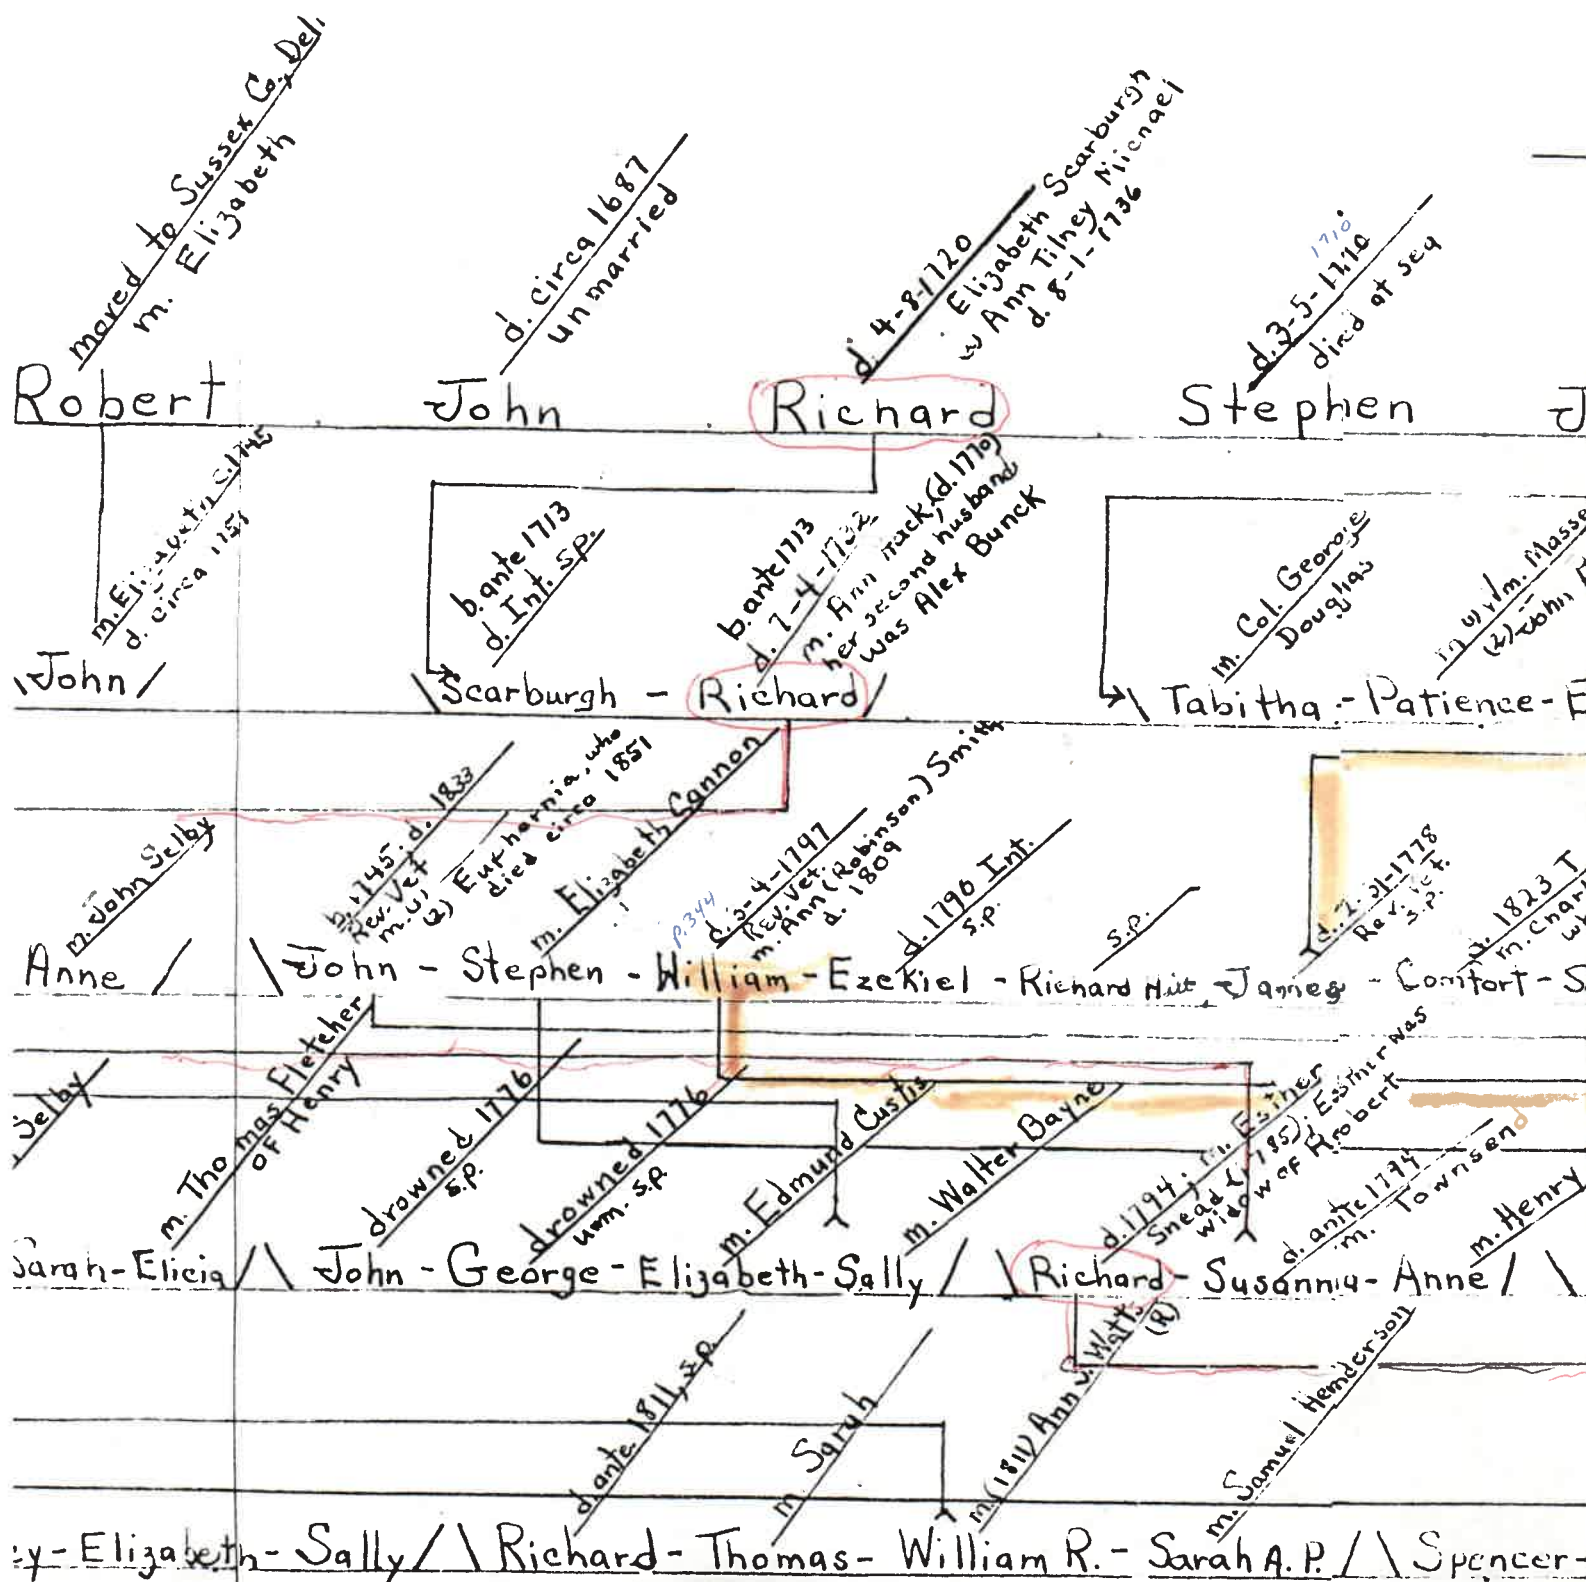 moved to Sussex Co., Del.
m. Elizabeth
d. circa 1687
unmarried
d. 4-8-1720
Elizabeth Scarburgh
w Ann Tilney Michael
d. 8-1-1736
1710
d. 3-5-1710
died at sea
Robert
John
Richard
Stephen
J
m. Elizabeth c.1745
d. circa 1751
b. ante 1713
d. Int. s.p.
b. ante 1713
d. 7-4-1732
m. Ann (d. 1770)
her second husband
was Alex Bunck
m. Col. George
Douglas
m Wm. Masse
(2) John
\John/
\Scarburgh - Richard/
\Tabitha - Patience - E
m. John Selby
b. 1745. d. 1833
Rev. Vet
m. (1)
(2) who
died circa 1851
m. Elizabeth Cannon
p.344
d. 3-4-1797
Rev. Vet.
m. Ann (Robinson) Smith
d. 1809
d. 1796 Int.
s.p.
s.p.
d. 7-21-1778
Rev. Vet.
s.p.
d. 1823 T
m. Charl
wh
Anne / \John - Stephen - William - Ezekiel - Richard - James - Comfort - S
Selby
m. Thomas Fletcher
of Henry
drowned 1776
s.p.
drowned 1776
unm. s.p.
m. Edmund Custis
m. Walter Bayne
d. 1794; m. Esther
Snead (1785); Esther was
widow of Robert
d. ante 1794
m. Townsend
m. Henry
Sarah - Elicia / \ John - George - Elizabeth - Sally / \ Richard - Susannia - Anne / \
d. ante. 1811, s.p.
m. Sarah
m. (1811) Ann S. Watts
(R)
m. Samuel Henderson
ey - Elizabeth - Sally / \ Richard - Thomas - William R. - Sarah A.P. / \ Spencer -